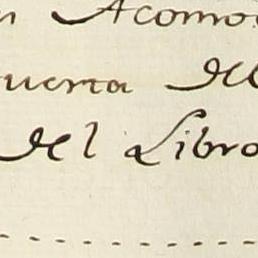 n Acomo
uerta del
del Libro